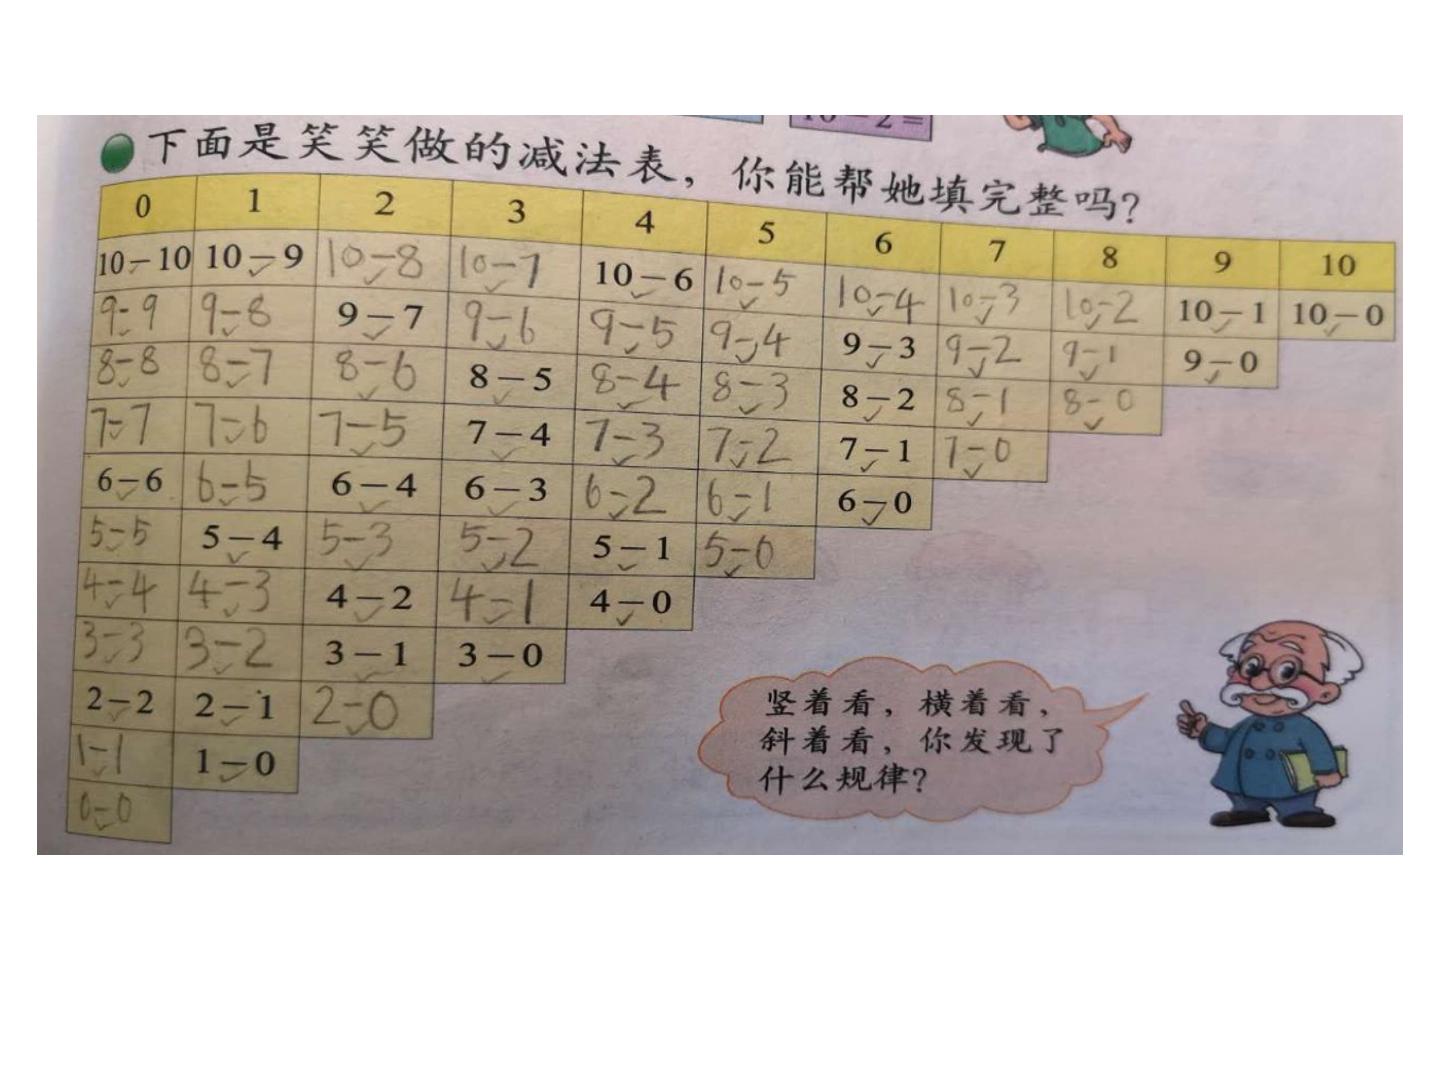 10－2＝
下面是笑笑做的减法表，你能帮她填完整吗？
0 1 2 3 4 5 6 7 8 9 10
10－10 10－9 10－8 10－7 10－6 10－5 10－4 10－3 10－2 10－1 10－0
9－9 9－8 9－7 9－6 9－5 9－4 9－3 9－2 9－1 9－0
8－8 8－7 8－6 8－5 8－4 8－3 8－2 8－1 8－0
7－7 7－6 7－5 7－4 7－3 7－2 7－1 7－0
6－6 6－5 6－4 6－3 6－2 6－1 6－0
5－5 5－4 5－3 5－2 5－1 5－0
4－4 4－3 4－2 4－1 4－0
3－3 3－2 3－1 3－0
2－2 2－1 2－0
1－1 1－0
0－0
竖着看，横着看，
斜着看，你发现了
什么规律？